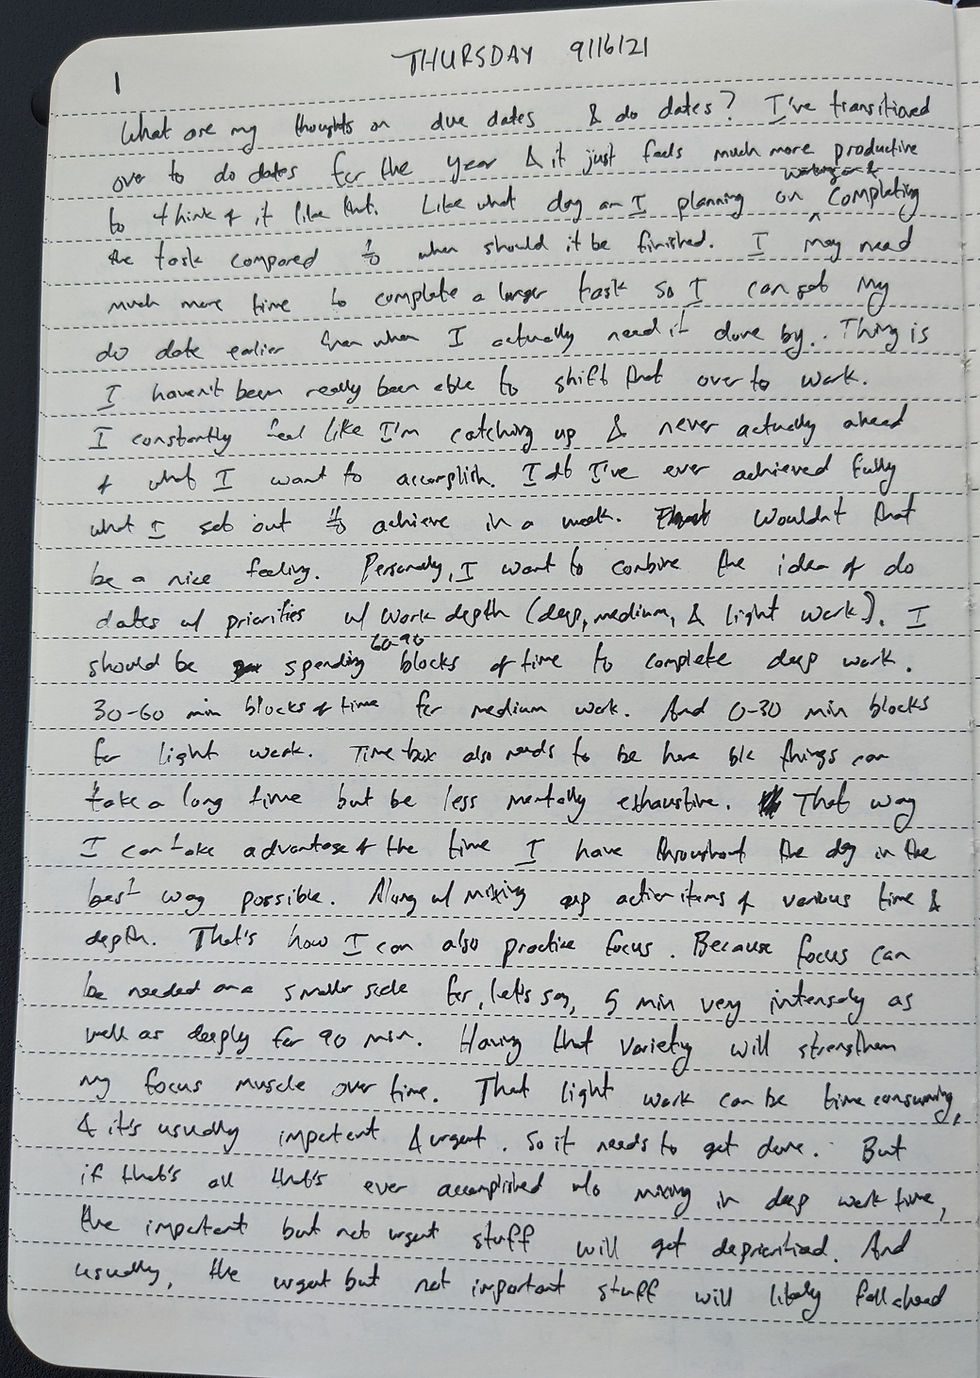 THURSDAY 9/16/21
1
What are my thoughts on due dates & do dates? I've transitioned
over to do dates for the year & it just feels much more productive
to think of it like that. Like what day am I planning on working on & completing
the task compared to when should it be finished. I may need
much more time to complete a larger task so I can set my
do date earlier than when I actually need it done by. Thing is
I haven't been really been able to shift that over to work.
I constantly feel like I'm catching up & never actually ahead
of what I want to accomplish. I I've ever achieved fully
what I set out to achieve in a week. Wouldn't that
be a nice feeling. Personally, I want to combine the idea of do
dates w/ priorities w/ work depth (deep, medium, & light work). I
should be spending 60-90 blocks of time to complete deep work.
30-60 min blocks of time for medium work. And 0-30 min blocks
for light work. Time box also needs to be here b/c things can
take a long time but be less mentally exhaustive. That way
I can take advantage of the time I have throughout the day in the
best way possible. Along w/ mixing up action items of various time &
depth. That's how I can also practice focus. Because focus can
be needed on a smaller scale for, let's say, 5 min very intensely as
well as deeply for 90 min. Having that variety will strengthen
my focus muscle over time. That light work can be time consuming,
& it's usually important & urgent. So it needs to get done. But
if that's all that's ever accomplished w/o mixing in deep work time,
the important but not urgent stuff will get deprioritized. And
usually, the urgent but not important stuff will likely fall ahead